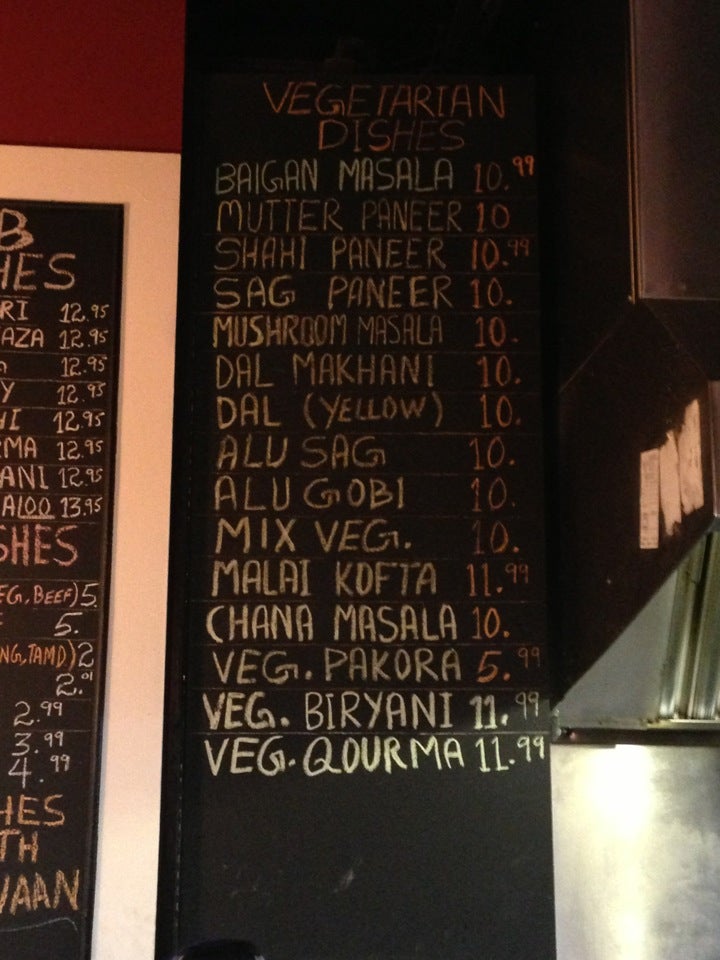 B
HES
RI 12.95
AZA 12.95
12.95
Y 12.95
HI 12.95
RMA 12.95
ANI 12.95
ALOO 13.95
SHES
EG, BEEF) 5
5.
NG, TAMD) 2
2.01
2.99
3.99
4.99
HES
TH
NAAN
VEGETARIAN
DISHES
BAIGAN MASALA 10.99
MUTTER PANEER 10
SHAHI PANEER 10.99
SAG PANEER 10.
MUSHROOM MASALA 10.
DAL MAKHANI 10.
DAL (YELLOW) 10.
ALU SAG 10.
ALU GOBI 10.
MIX VEG. 10.
MALAI KOFTA 11.99
CHANA MASALA 10.
VEG. PAKORA 5.99
VEG. BIRYANI 11.99
VEG. QOURMA 11.99